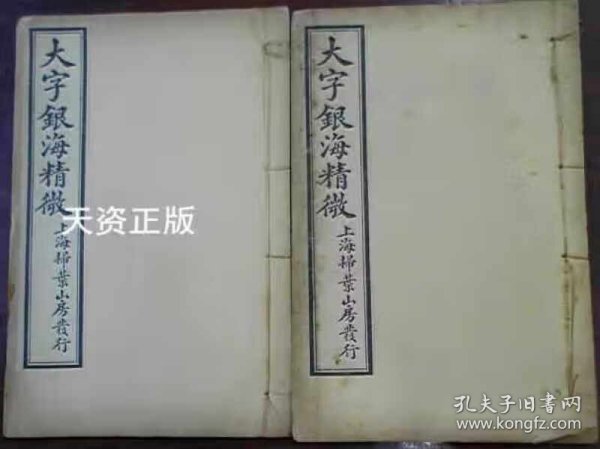 大字銀海精微
上海掃葉山房發行
大字銀海精微
上海掃葉山房發行
天资正版
孔夫子旧书网
www.kongfz.com